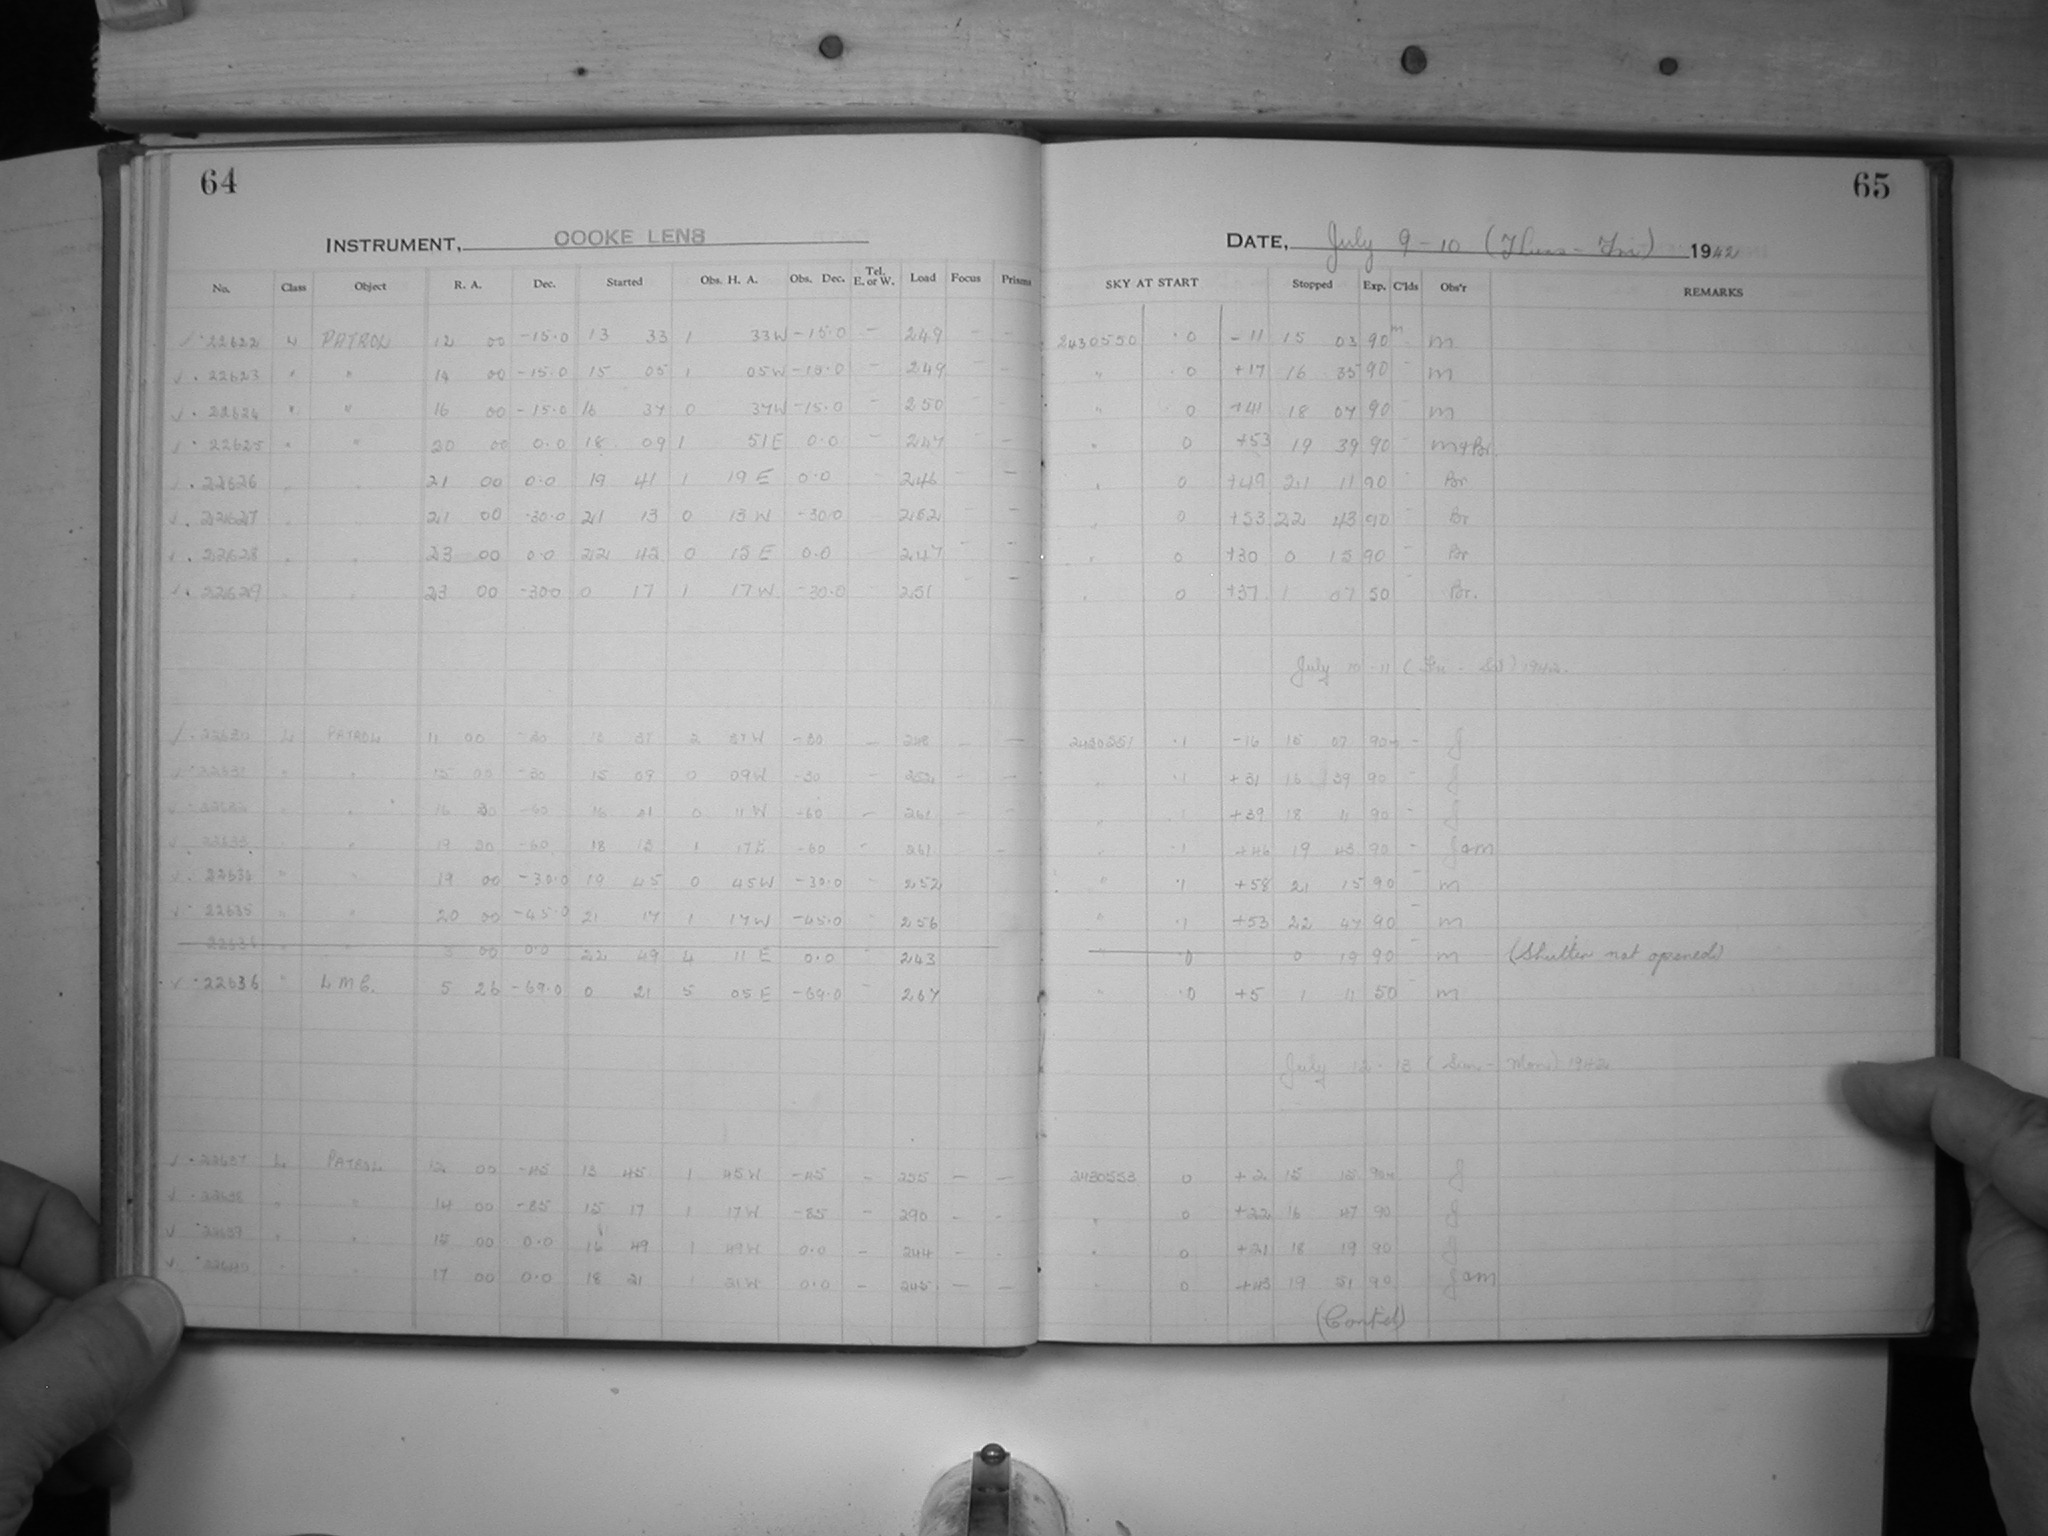 64
65
INSTRUMENT, COOKE LENS
DATE, July 9-10 (Thurs - Fri) 1942
No. Class Object R. A. Dec. Started Obs. H. A. Obs. Dec. Tel. E. or W. Load Focus Prisms SKY AT START Stopped Exp. C'lds Obs'r REMARKS
√ · 22622 L PATROL 12 00 -15.0 13 33 1 33W -15.0 - 249 - - 2430550 ·0 -11 15 03 90m - m
√ · 22623 " " 14 00 -15.0 15 05 1 05W -15.0 - 249 - - " ·0 +17 16 35 90 - m
√ · 22624 " " 16 00 -15.0 16 37 0 37W -15.0 - 250 - - " 0 +41 18 07 90 - m
√ · 22625 " " 20 00 0.0 18 09 1 51E 0.0 - 247 - - " 0 +53 19 39 90 - m+Br
√ · 22626 " " 21 00 0.0 19 41 1 19E 0.0 246 - - " 0 +49 21 11 90 - Br
√ · 22627 " " 21 00 -30.0 21 13 0 13W -30.0 252 - - " 0 +53 22 43 90 - Br
√ · 22628 " " 23 00 0.0 22 45 0 15E 0.0 247 - - " 0 +30 0 15 90 - Br
√ · 22629 " " 23 00 -30.0 0 17 1 17W -30.0 251 - - " 0 +37 1 07 50 Br.
July 10-11 (Fri - Sat) 1942.
√ · 22630 L PATROL 11 00 -30 13 37 2 37W -30 - 248 - - 2430551 ·1 -16 15 07 90m - J
√ · 22631 " " 15 00 -30 15 09 0 09W -30 - 252 - - " ·1 +31 16 39 90 - J
√ 22632 " " 16 30 -60 16 41 0 11W -60 - 261 - - " ·1 +39 18 11 90 - J
√ 22633 " " 19 30 -60 18 13 1 17E -60 - 261 - " ·1 +46 19 43 90 - J & m
√ · 22634 " " 19 00 -30.0 19 45 0 45W -30.0 - 252 " ·1 +58 21 15 90 - m
√ · 22635 " " 20 00 -45.0 21 17 1 17W -45.0 - 256 " ·1 +53 22 47 90 - m
22636 " " 3 00 0.0 22 49 4 11E 0.0 243 " ·0 0 19 90 - m (Shutter not opened)
√ · 22636 " L M C. 5 26 -69.0 0 21 5 05E -69.0 - 267 " ·0 +5 1 11 50 m
July 12-13 (Sun - Mon) 1942
√ · 22637 L PATROL 12 00 -45 13 45 1 45W -45 - 255 - - 2430553 0 +2 15 15 90m J
√ · 22638 " " 14 00 -85 15 17 1 17W -85 - 290 - - " 0 +22 16 47 90 J
√ · 22639 " " 15 00 0.0 16 49 1 49W 0.0 - 244 - - " 0 +21 18 19 90 J
√ · 22640 " " 17 00 0.0 18 21 1 21W 0.0 - 245 - - " 0 +43 19 51 90 J & m
(Cont'd)